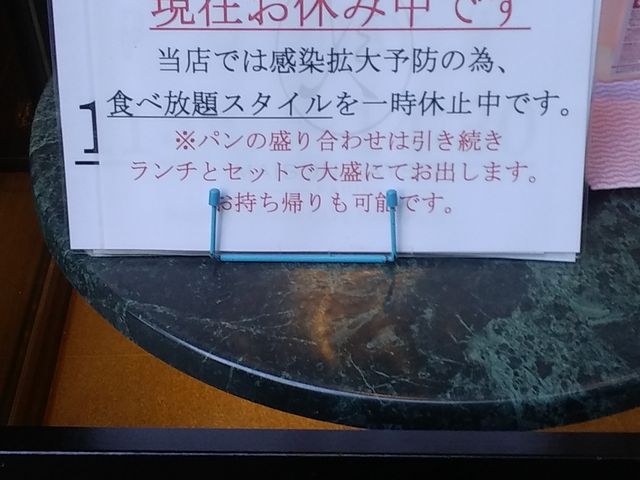 現在お休み中です
当店では感染拡大予防の為、
食べ放題スタイルを一時休止中です。
※パンの盛り合わせは引き続き
ランチとセットで大盛にてお出します。
お持ち帰りも可能です。